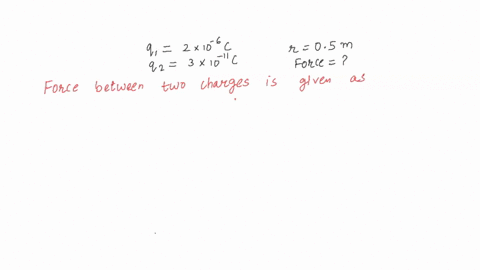 q₁ = 2 × 10⁻⁶ C r = 0.5 m
q₂ = 3 × 10⁻¹¹ C Force = ?
Force between two charges is given as